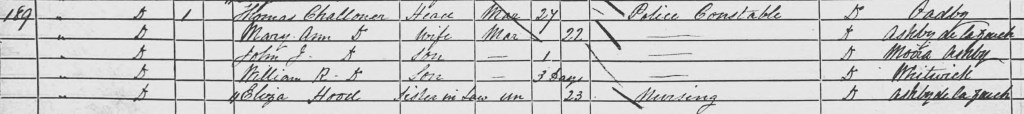 189 " D 1 Thomas Challoner Head Mar 27 Police Constable Do Oadby
" D Mary Ann D Wife Mar 22 — D Ashby de la Zouch
" D John J. D Son — 1 — D Moira Ashby
" D William R. D Son — 3 Days — D Whitwick
" D Eliza Hood Sister in Law un 23 Nursing D Ashby de la Zouch